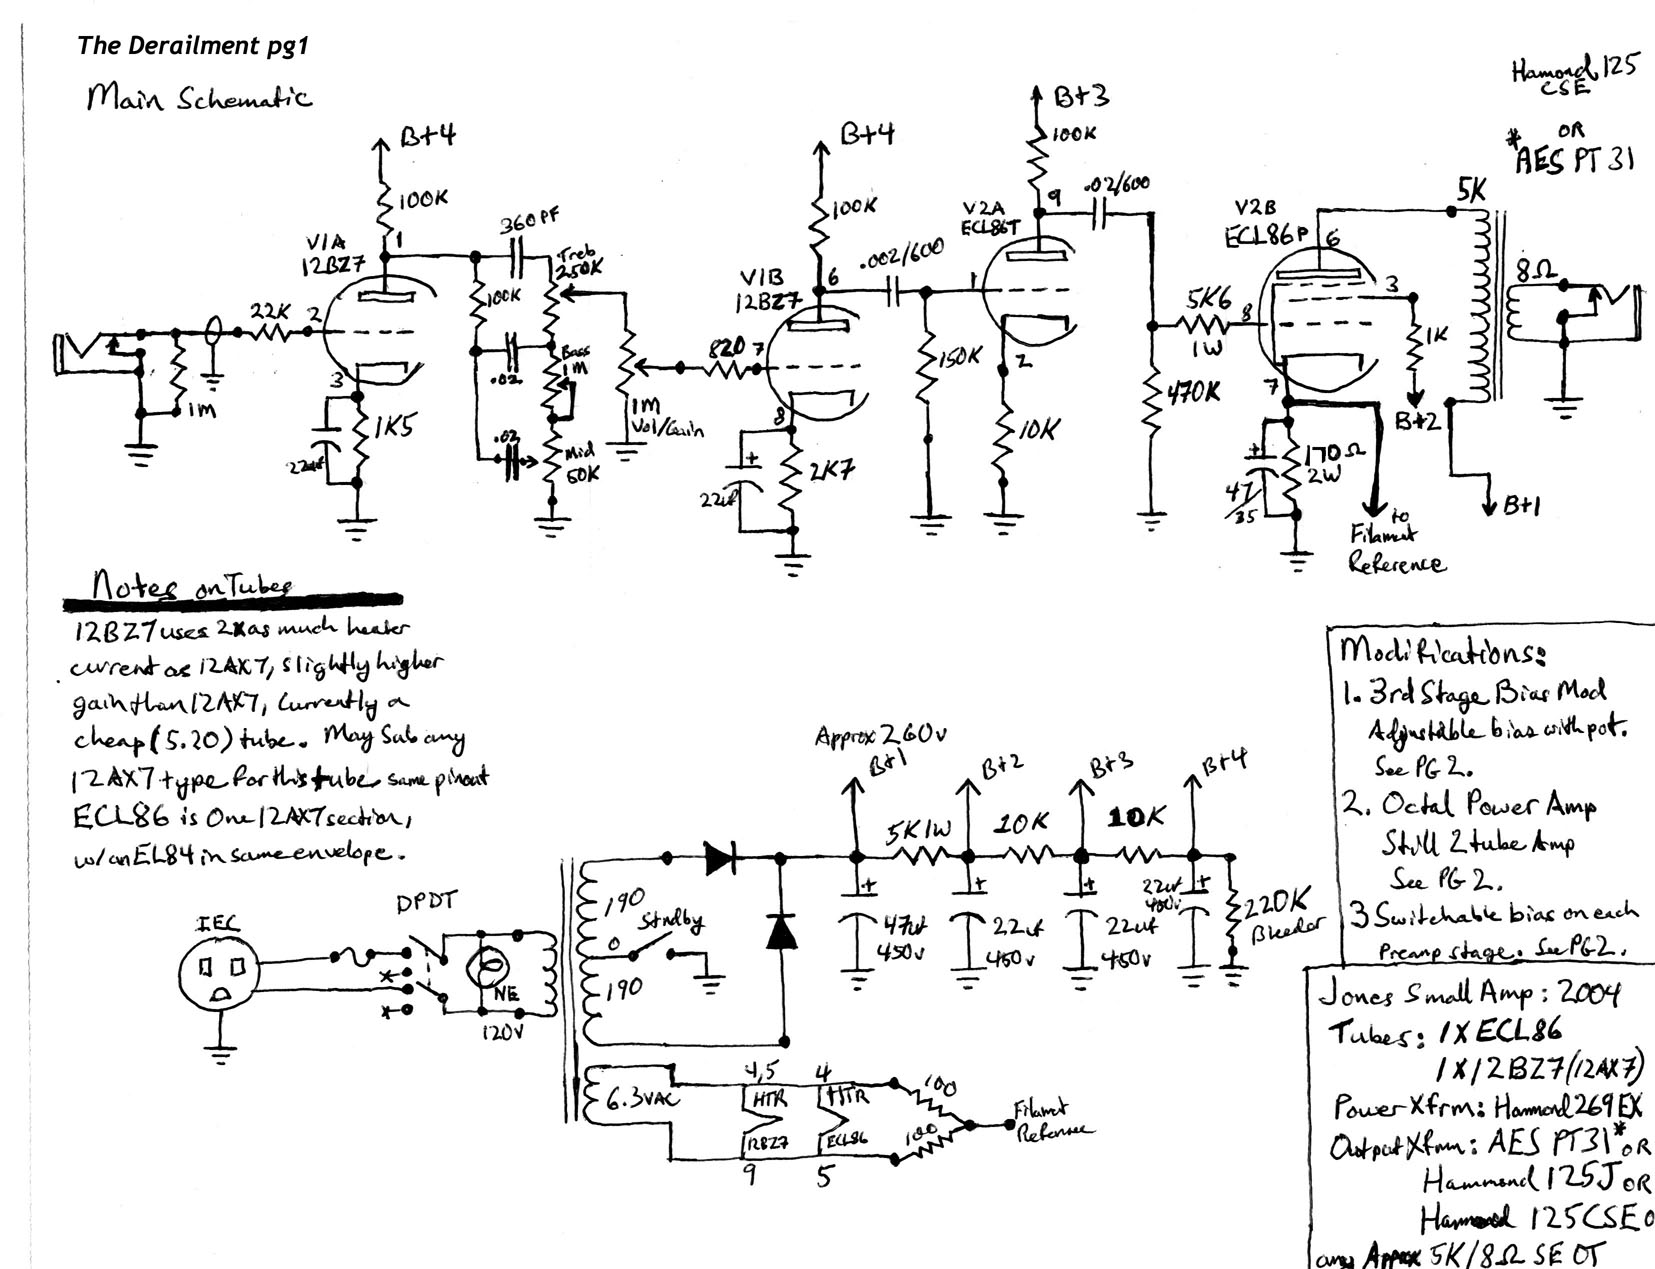 The Derailment pg1
Main Schematic
Hamond 125
CSE
OR
*AES PT 31
B+4
100K
360PF
V1A
12BZ7
1
Treb
250K
100K
22K
2
3
1M
22uf
1K5
.02
Bass
1M
.02
Mid
50K
1M
Vol/Gain
B+4
100K
V1B
12BZ7
6
820
7
8
22uf
+
2K7
.002/600
150K
B+3
100K
9
V2A
ECL86T
1
2
10K
.02/600
5K6
1W
470K
V2B
ECL86P
6
8
3
7
1K
B+2
170Ω
2W
+
47/35
to
Filament
Reference
5K
8Ω
B+1
Notes on Tubes
12BZ7 uses 2x as much heater
current as 12AX7, slightly higher
gain than 12AX7, Currently a
cheap (5.20) tube. May Sub any
12AX7 type for this tube same pinout
ECL86 is One 12AX7 section,
w/an EL84 in same envelope.
Modifications:
1. 3rd Stage Bias Mod
Adjustable bias with pot.
See PG 2.
2. Octal Power Amp
Still 2 tube Amp
See PG 2.
3 Switchable bias on each
Preamp stage. See PG2.
Approx 260v
B+1
B+2
B+3
B+4
5K 1W
10K
10K
+
47uf
450v
+
22uf
450v
+
22uf
450v
+
22uf
450v
220K
Bleeder
IEC
DPDT
*
*
NE
120V
190
0
190
Stndby
6.3VAC
4,5
HTR
12BZ7
9
4
HTR
ECL86
5
100
100
Filament
Reference
Jones Small Amp: 2004
Tubes: 1 X ECL86
1 X 12BZ7/(12AX7)
Power Xfrm: Hammond 269EX
Output Xfrm: AES PT31* OR
Hammond 125J OR
Hammond 125CSE O
any Approx 5K/8Ω SE OT